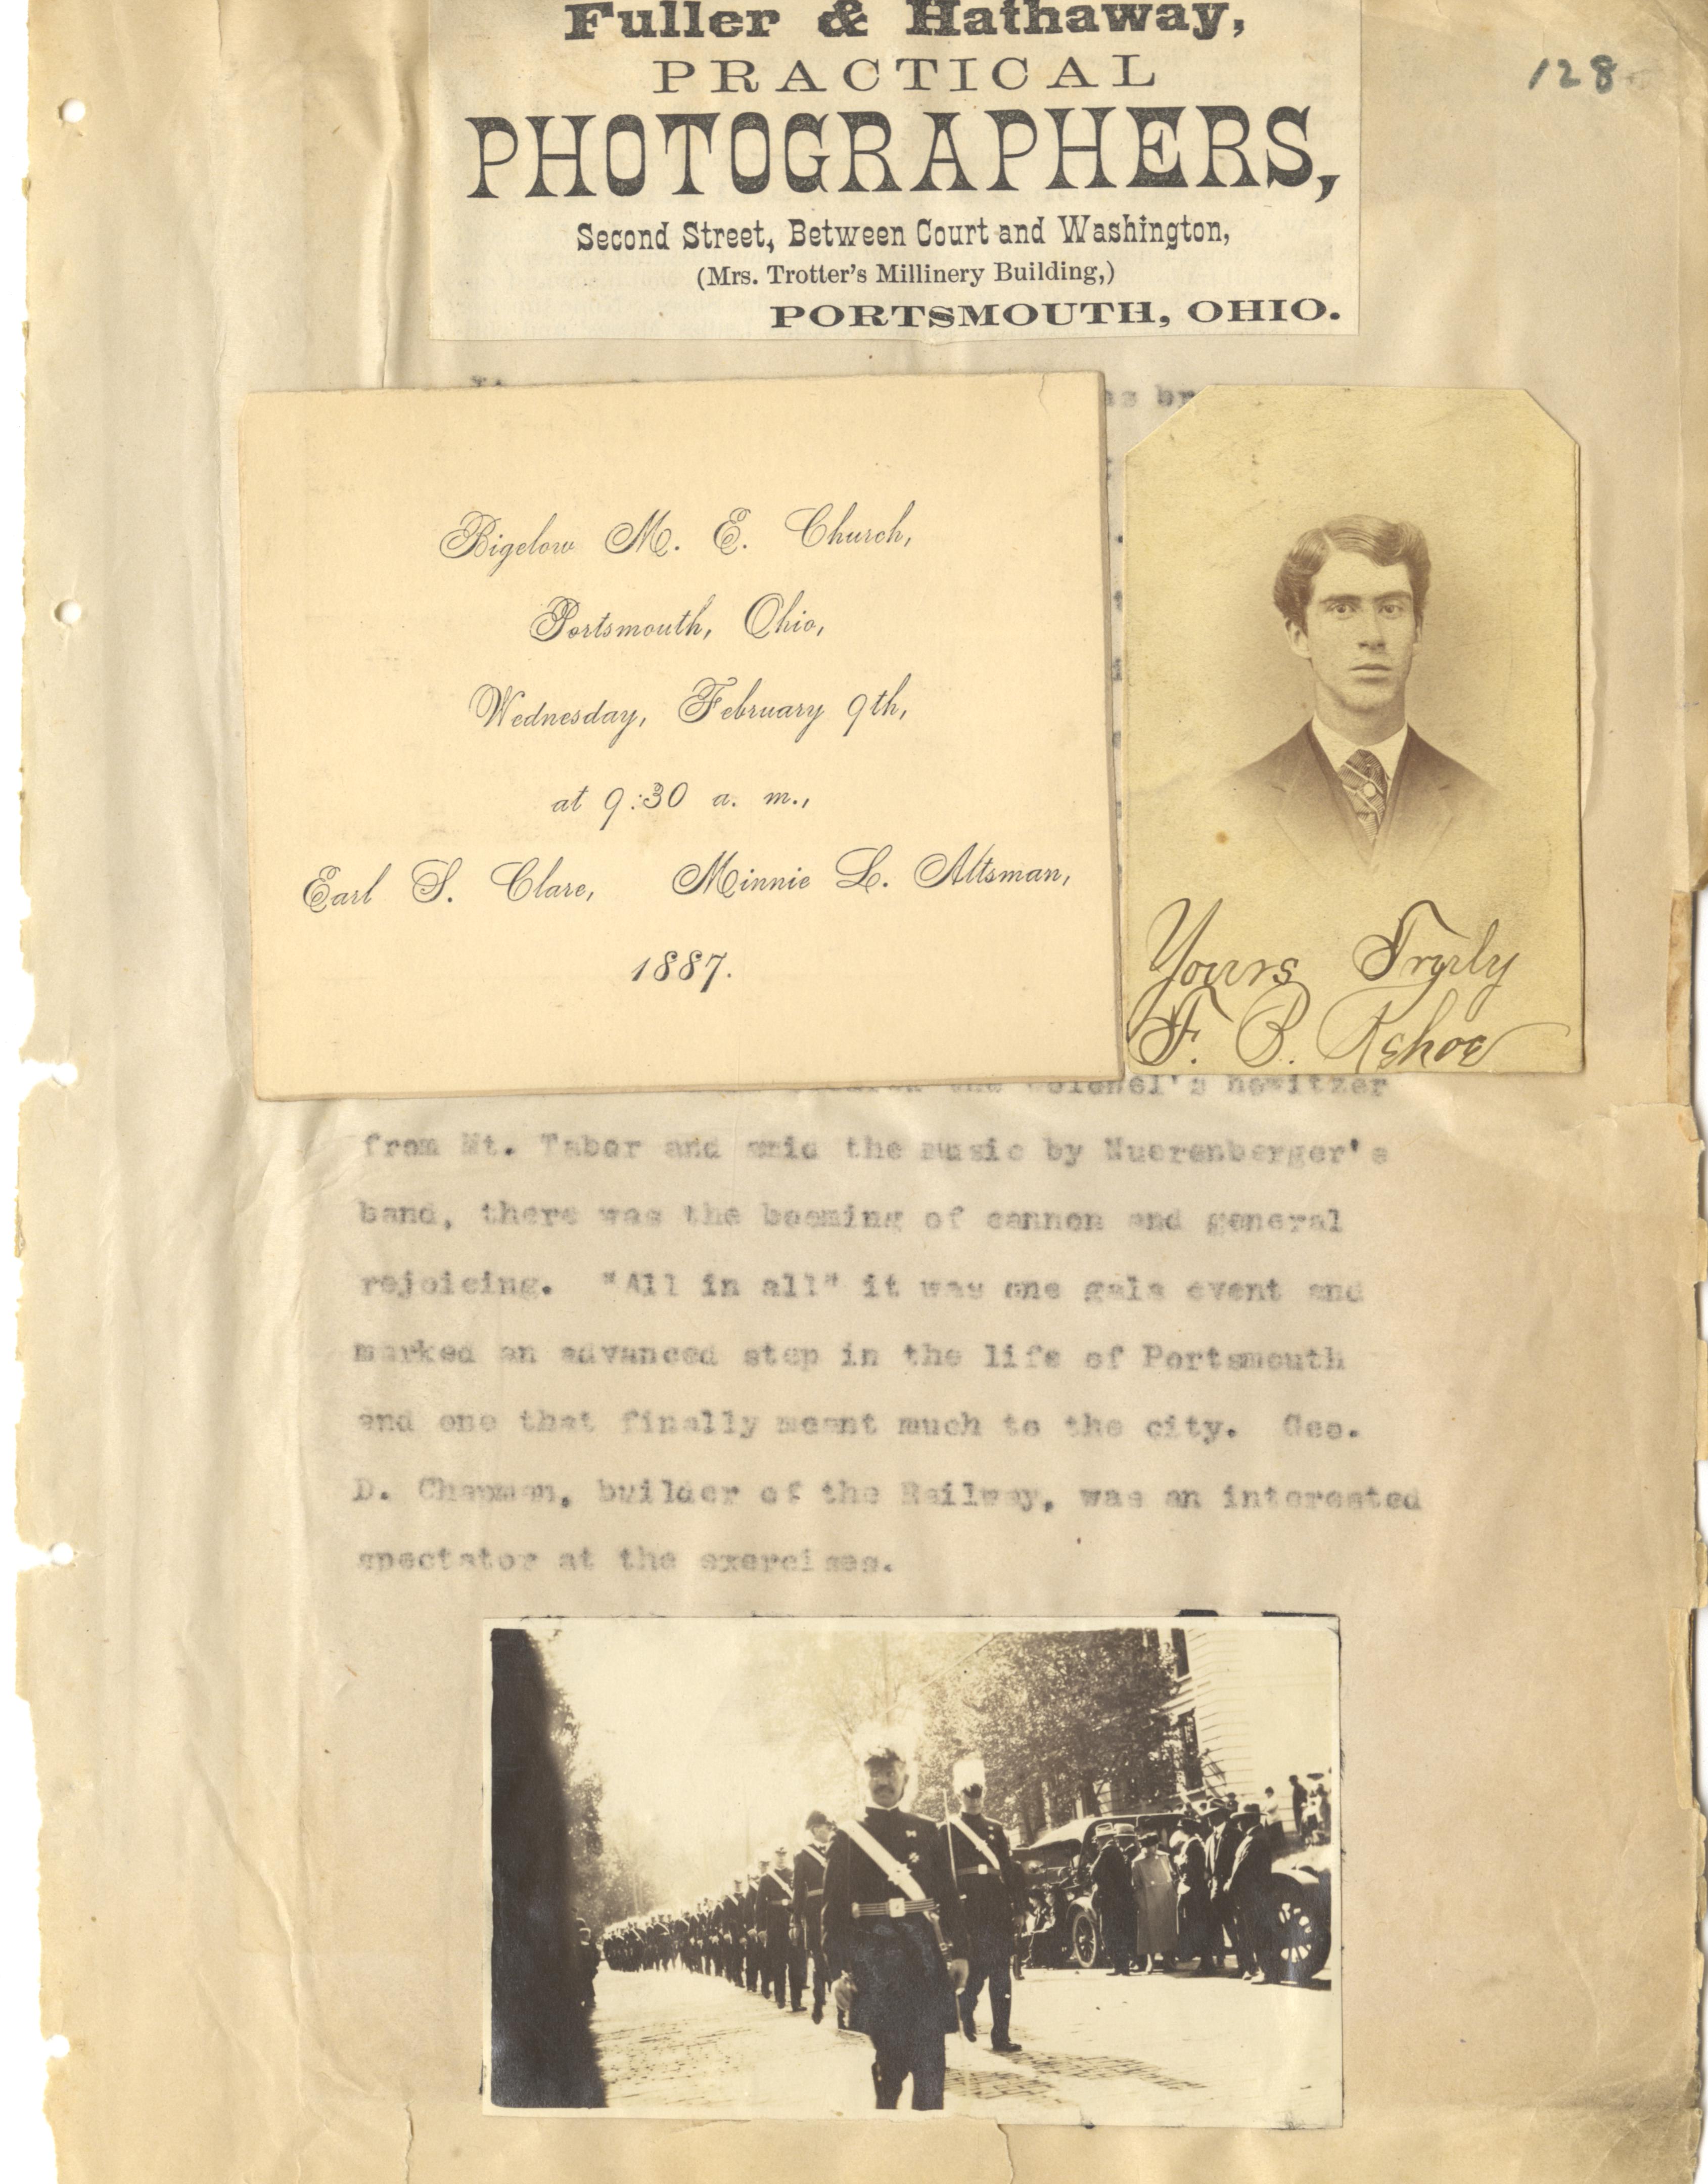 Fuller & Hathaway,
PRACTICAL
PHOTOGRAPHERS,
Second Street, Between Court and Washington,
(Mrs. Trotter's Millinery Building,)
PORTSMOUTH, OHIO.
128
Bigelow M. E. Church,
Portsmouth, Ohio,
Wednesday, February 9th,
at 9:30 a. m.,
Earl S. Clare, Minnie L. Altsman,
1887.
Yours Truly
F. B. Kehoe
the Colonel's howitzer
from Mt. Tabor and amid the music by Nuerenberger's
band, there was the booming of cannon and general
rejoicing. "All in all" it was one gala event and
marked an advanced step in the life of Portsmouth
and one that finally meant much to the city. Geo.
D. Chapman, builder of the Railway, was an interested
spectator at the exercises.